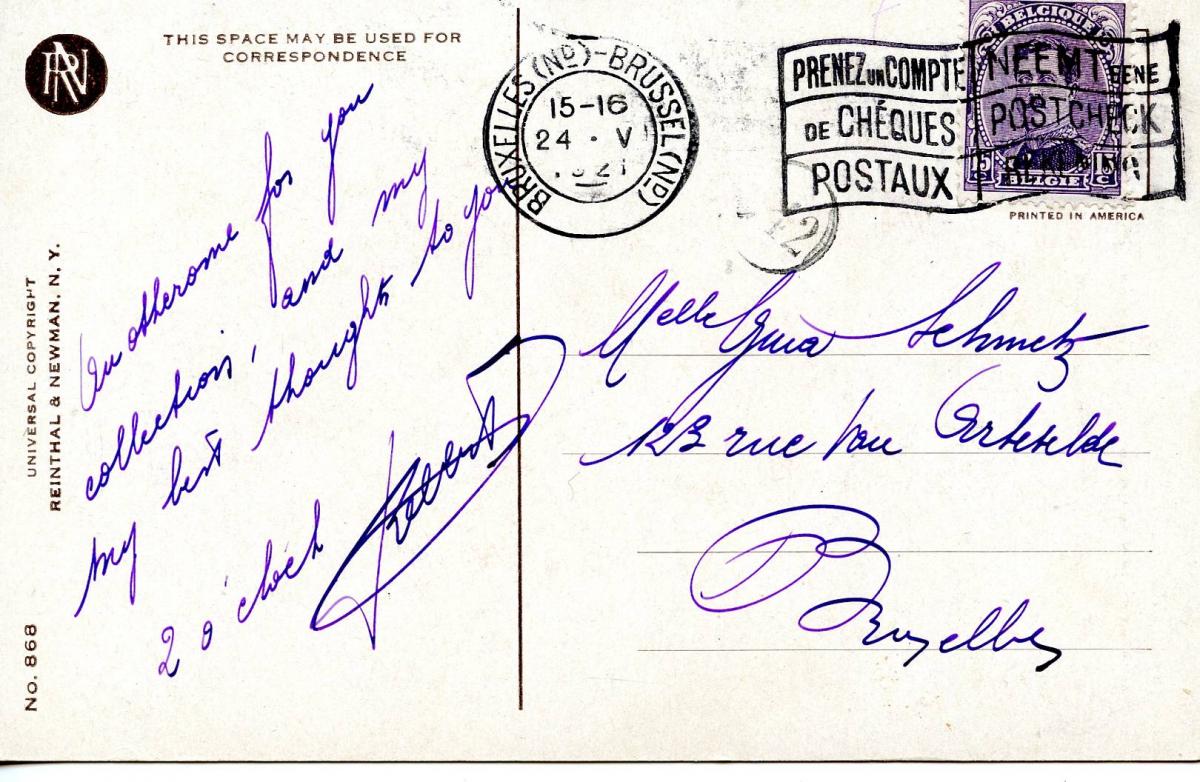 THIS SPACE MAY BE USED FOR
CORRESPONDENCE
An otherome for you
collection, and my
my best thought to you
2 o'clock
UNIVERSAL COPYRIGHT
REINTHAL & NEWMAN. N. Y.
No. 868
BRUXELLES (ND)-BRUSSEL (ND)
15-16
24 · V
1921
PRENEZ UN COMPTE
DE CHÉQUES
POSTAUX
NEEMT EENE
POSTCHECK
BELGIQUE
15 c 15 c
BELGIE
12
PRINTED IN AMERICA
Melle Schmetz
123 rue Van Artevelde
Bruxelles